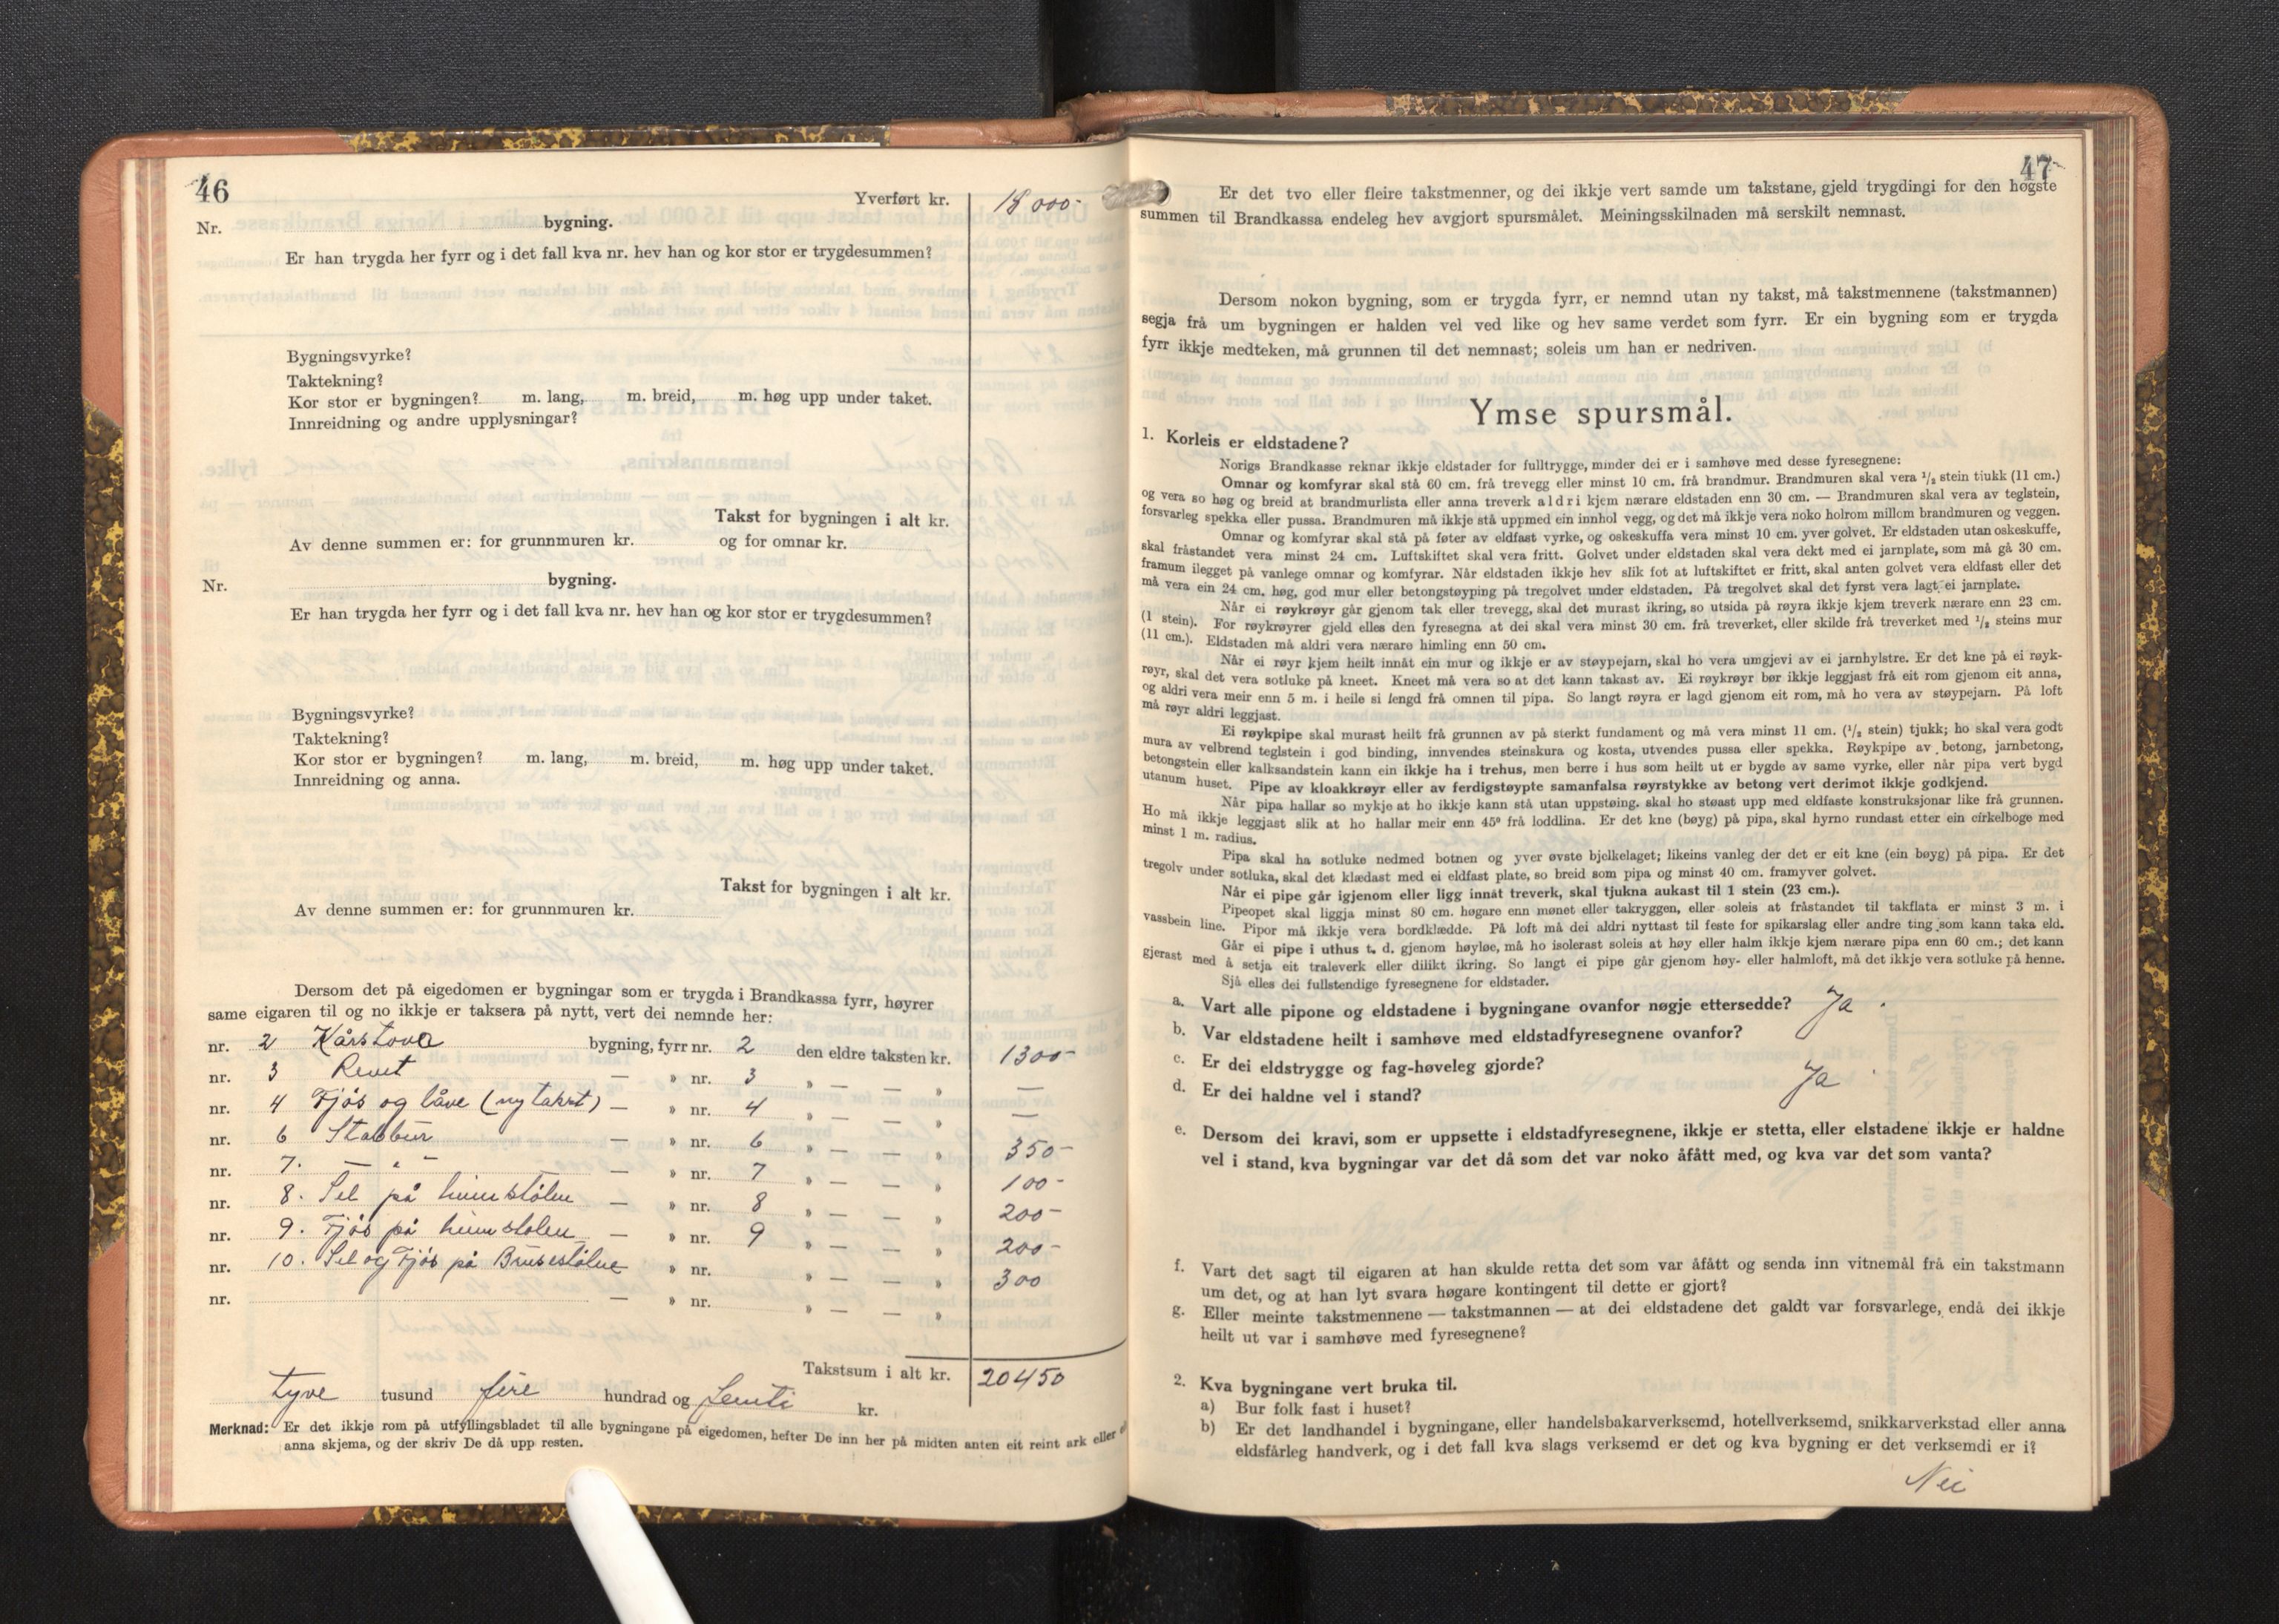 46
Yverført kr. 18 000-
Nr. bygning.
Er han trygda her fyrr og i det fall kva nr. hev han og kor stor er trygdesummen?
Bygningsvyrke?
Taktekning?
Kor stor er bygningen? m. lang, m. breid, m. høg upp under taket.
Innreidning og andre upplysningar?
Takst for bygningen i alt kr.
Av denne summen er: for grunnmuren kr. og for omnar kr.
Nr. bygning.
Er han trygda her fyrr og i det fall kva nr. hev han og kor stor er trygdesummen?
Bygningsvyrke?
Taktekning?
Kor stor er bygningen? m. lang, m. breid, m. høg upp under taket.
Innreidning og anna.
Takst for bygningen i alt kr.
Av denne summen er: for grunnmuren kr.
Dersom det på eigedomen er bygningar som er trygda i Brandkassa fyrr, høyrer
same eigaren til og no ikkje er taksera på nytt, vert dei nemnde her:
nr. 2 Kårstova bygning, fyrr nr. 2 den eldre taksten kr. 1300-
nr. 3 — » nr. 3 » — — » —
nr. 4 Fjøs og låve (ny takst) — » nr. 4 » — — » —
nr. 6 Stabbur — » nr. 6 » — — » 350-
nr. 7. — " — — » nr. 7 » — — » 100-
nr. 8. Sel på heimstølen — » nr. 8 » — — » 200-
nr. 9. Fjøs på heimstølen — » nr. 9 » — — » 200-
nr. 10. Sel og Fjøs på Brusestølne — » nr. » — — » 300
nr. — » nr. » — — »
Takstsum i alt kr. 20450
tyve tusund fire hundrad og femti kr.
Merknad: Er det ikkje rom på utfyllingsbladet til alle bygningane på eigedomen, hefter De inn her på midten anten eit reint ark eller
anna skjema, og der skriv De då upp resten.
47
Er det tvo eller fleire takstmenner, og dei ikkje vert samde um takstane, gjeld trygdingi for den høgste
summen til Brandkassa endeleg hev avgjort spursmålet. Meiningsskilnaden må serskilt nemnast.
Dersom nokon bygning, som er trygda fyrr, er nemnd utan ny takst, må takstmennene (takstmannen)
segja frå um bygningen er halden vel ved like og hev same verdet som fyrr. Er ein bygning som er trygda
fyrr ikkje medteken, må grunnen til det nemnast; soleis um han er nedriven.
Ymse spursmål.
1. Korleis er eldstadene?
Norigs Brandkasse reknar ikkje eldstader for fulltrygge, minder dei er i samhøve med desse fyresegnene:
Omnar og komfyrar skal stå 60 cm. frå trevegg eller minst 10 cm. frå brandmur. Brandmuren skal vera 1/2 stein tjukk (11 cm.)
og vera so høg og breid at brandmurlista eller anna treverk aldri kjem nærare eldstaden enn 30 cm. — Brandmuren skal vera av teglstein,
forsvarleg spekka eller pussa. Brandmuren må ikkje stå uppmed ein innhol vegg, og det må ikkje vera noko holrom millom brandmuren og veggen.
Omnar og komfyrar skal stå på føter av eldfast vyrke, og oskeskuffa vera minst 10 cm. yver golvet. Er eldstaden utan oskeskuffe,
skal fråstandet vera minst 24 cm. Luftskiftet skal vera fritt. Golvet under eldstaden skal vera dekt med ei jarnplate, som må gå 30 cm.
framum ilegget på vanlege omnar og komfyrar. Når eldstaden ikkje hev slik fot at luftskiftet er fritt, skal anten golvet vera eldfast eller det
må vera ein 24 cm. høg, god mur eller betongstøyping på tregolvet under eldstaden. På tregolvet skal det fyrst vera lagt ei jarnplate.
Når ei røykrøyr går gjenom tak eller trevegg, skal det murast ikring, so utsida på røyra ikkje kjem treverk nærare enn 23 cm.
(1 stein). For røykrøyrer gjeld elles den fyresegna at dei skal vera minst 30 cm. frå treverket, eller skilde frå treverket med 1/2 steins mur
(11 cm.). Eldstaden må aldri vera nærare himling enn 50 cm.
Når ei røyr kjem heilt innåt ein mur og ikkje er av støypejarn, skal ho vera umgjevi av ei jarnhylstre. Er det kne på ei røyk-
røyr, skal det vera sotluke på kneet. Kneet må vera so at det kann takast av. Ei røykrøyr bør ikkje leggjast frå eit rom gjenom eit anna,
og aldri vera meir enn 5 m. i heile si lengd frå omnen til pipa. So langt røyra er lagd gjenom eit rom, må ho vera av støypejarn. På loft
må røyr aldri leggjast.
Ei røykpipe skal murast heilt frå grunnen av på sterkt fundament og må vera minst 11 cm. (1/2 stein) tjukk; ho skal vera godt
mura av velbrend teglstein i god binding, innvendes steinskura og kosta, utvendes pussa eller spekka. Røykpipe av betong, jarnbetong,
betongstein eller kalksandstein kann ein ikkje ha i trehus, men berre i hus som heilt ut er bygde av same vyrke, eller når pipa vert bygd
utanum huset. Pipe av kloakkrøyr eller av ferdigstøypte samanfalsa røyrstykke av betong vert derimot ikkje godkjend.
Når pipa hallar so mykje at ho ikkje kann stå utan uppstøing. skal ho støast upp med eldfaste konstruksjonar like frå grunnen.
Ho må ikkje leggjast slik at ho hallar meir enn 45° frå loddlina. Er det kne (bøyg) på pipa, skal hyrno rundast etter ein cirkelboge med
minst 1 m. radius.
Pipa skal ha sotluke nedmed botnen og yver øvste bjelkelaget; likeins vanleg der det er eit kne (ein bøyg) på pipa. Er det
tregolv under sotluka, skal det klædast med ei eldfast plate, so breid som pipa og minst 40 cm. framyver golvet.
Når ei pipe går igjenom eller ligg innåt treverk, skal tjukna aukast til 1 stein (23 cm.).
Pipeopet skal liggja minst 80 cm. høgare enn mønet eller takryggen, eller soleis at fråstandet til takflata er minst 3 m. i
vassbein line. Pipor må ikkje vera bordklædde. På loft må dei aldri nyttast til feste for spikarslag eller andre ting som kann taka eld.
Går ei pipe i uthus t. d. gjenom høyløe, må ho isolerast soleis at høy eller halm ikkje kjem nærare pipa enn 60 cm.; det kann
gjerast med å setja eit traleverk eller dilikt ikring. So langt ei pipe går gjenom høy- eller halmloft, må det ikkje vera sotluke på henne.
Sjå elles dei fullstendige fyresegnene for eldstader.
a. Vart alle pipone og eldstadene i bygningane ovanfor nøgje ettersedde? Ja.
b. Var eldstadene heilt i samhøve med eldstadfyresegnene ovanfor?
c. Er dei eldstrygge og fag-høveleg gjorde? Ja
d. Er dei haldne vel i stand?
e. Dersom dei kravi, som er uppsette i eldstadfyresegnene, ikkje er stetta, eller elstadene ikkje er haldne
vel i stand, kva bygningar var det då som det var noko åfått med, og kva var det som vanta?
f. Vart det sagt til eigaren at han skulde retta det som var åfått og senda inn vitnemål frå ein takstmann
um det, og at han lyt svara høgare kontingent til dette er gjort?
g. Eller meinte takstmennene — takstmannen — at dei eldstadene det galdt var forsvarlege, endå dei ikkje
heilt ut var i samhøve med fyresegnene?
2. Kva bygningane vert bruka til.
a) Bur folk fast i huset?
b) Er det landhandel i bygningane, eller handelsbakarverksemd, hotellverksemd, snikkarverkstad eller anna
eldsfårleg handverk, og i det fall kva slags verksemd er det og kva bygning er det verksemdi er i?
Nei